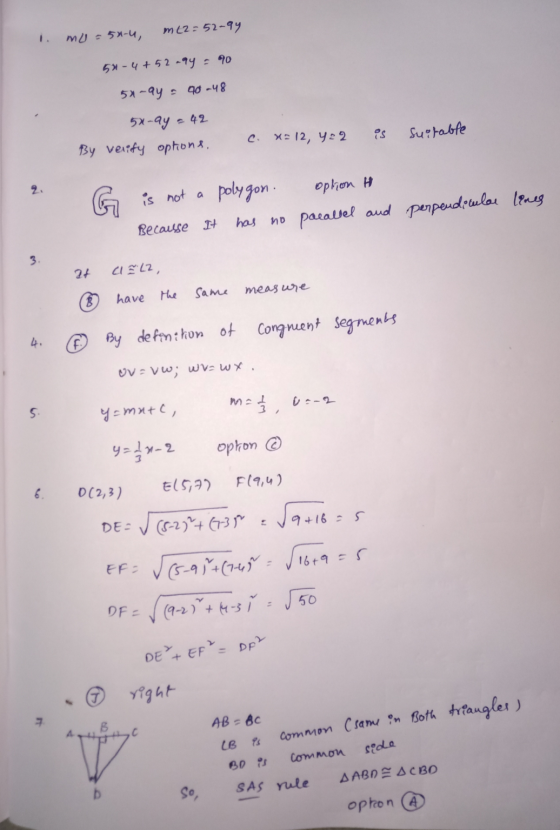 1. m∠1 = 5x-4, m∠2 = 52-9y
5x-4+52-9y = 90
5x-9y = 90-48
5x-9y = 42
By verify options. C. x=12, y=2 is suitable
2. G is not a polygon. option H
Because It has no parallel and perpendicular lines
3. If ∠1≅∠2,
(B) have the same measure
4. (F) By definition of congruent segments
UV = VW; WV = WX.
5. y=mx+c, m=1/3, c=-2
y=1/3x-2 option (C)
6. D(2,3) E(5,7) F(9,4)
DE = √(5-2)²+(7-3)² = √9+16 = 5
EF = √(5-9)²+(7-4)² = √16+9 = 5
DF = √(9-2)²+(4-3)² = √50
DE²+EF² = DF²
(J) right
7. A B C D
AB = BC
∠B is common (same in Both triangles)
BD is common side
So, SAS rule △ABD≅△CBD
option (A)